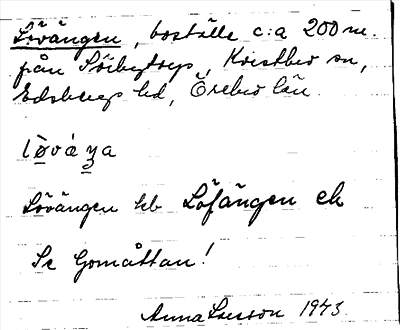 Lövängen, boställe c:a 200 m.
från Sörbytorp, Kvistbro sn,
Edsbergs hd, Örebro län.
Lövängen kb Löfängen ek
Se Gomåttan!
Anna Larsson 1943